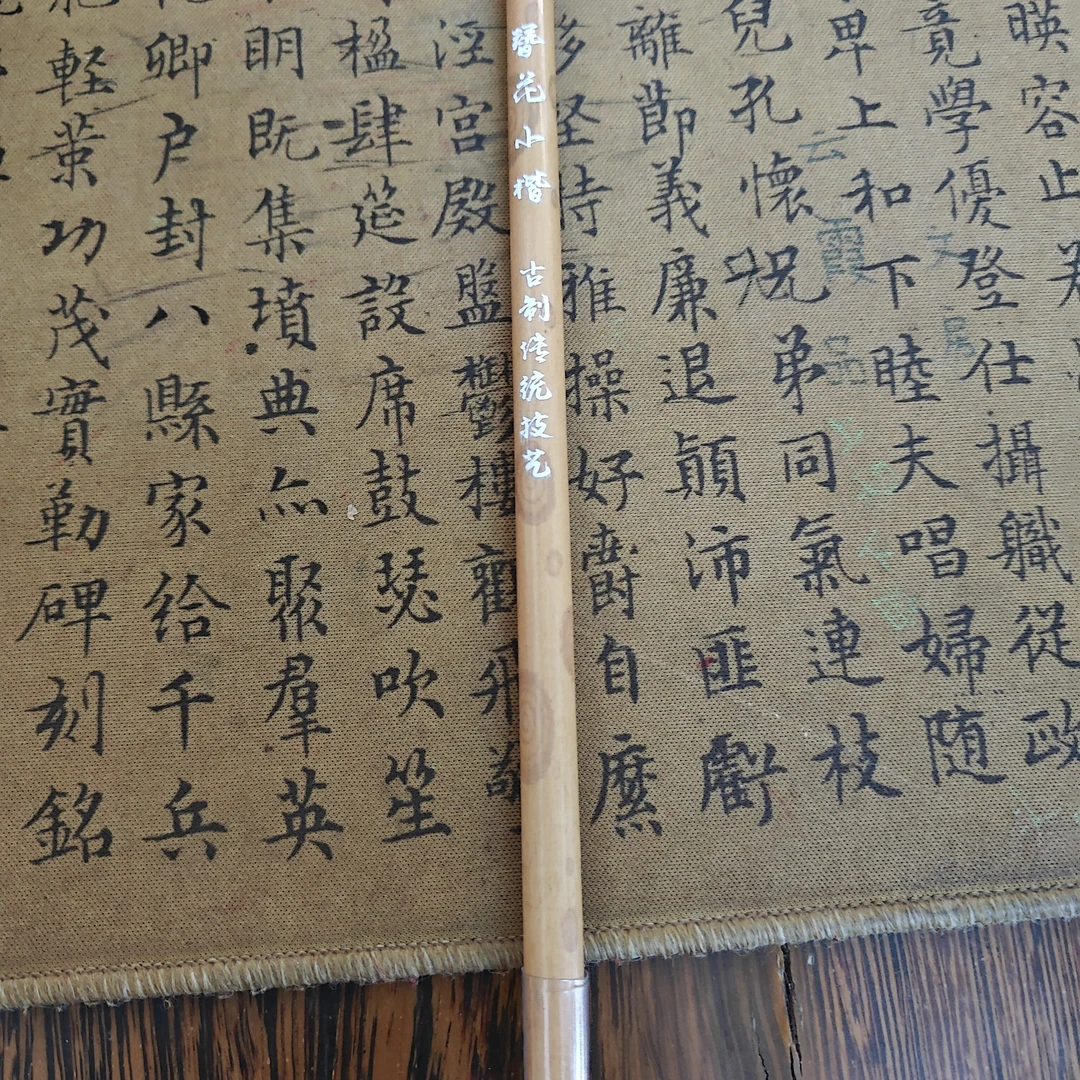 簪花小楷 古制传统技艺
暎容止若
竟學優登仕攝職從政
卑上和下睦夫唱婦随
兒孔懷兄弟同氣連枝
離節義廉退顛沛匪虧
移堅持雅操好爵自縻
宮殿盤鬱樓觀飛
楹肆筵設席鼓瑟吹笙
明既集墳典亦聚羣英
卿户封八縣家給千兵
軽策功茂實勒碑刻銘
云霞